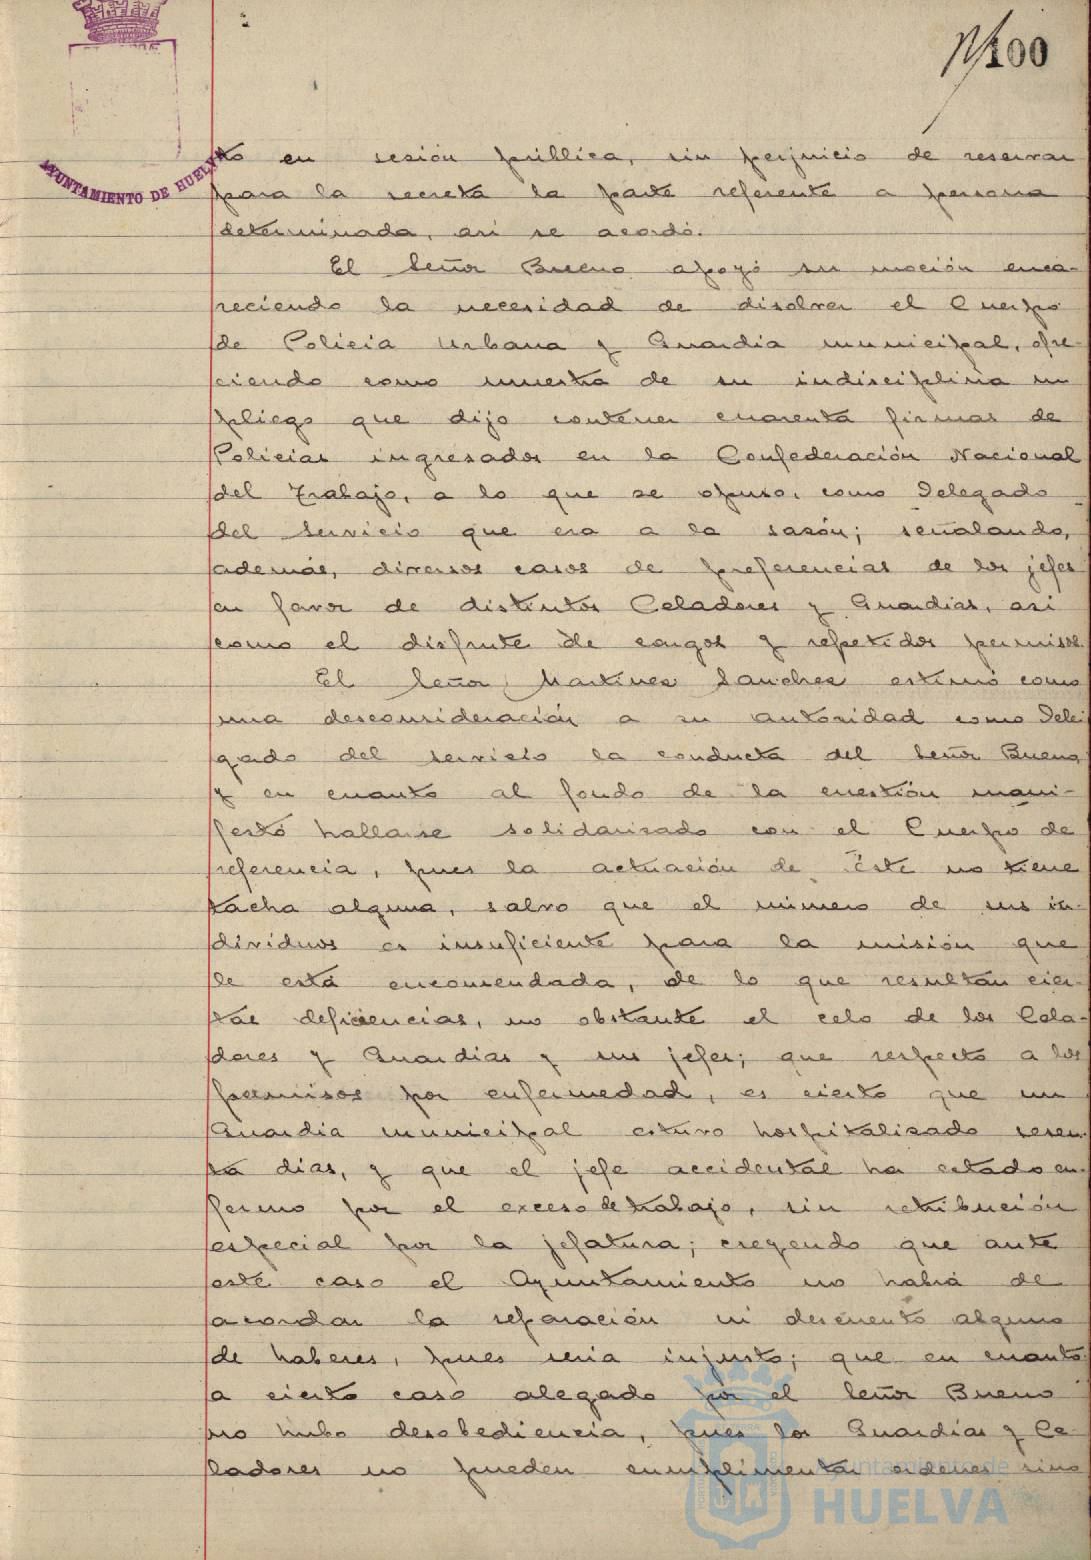 100
AYUNTAMIENTO DE HUELVA
to en sesión pública, sin perjuicio de reservar
para la secreta la parte referente a persona
determinada, asi se acordó.
El Señor Bueno apoyó su moción enca-
reciendo la necesidad de disolver el Cuerpo
de Policia Urbana y Guardia municipal, ofre-
ciendo como muestra de su indisciplina un
pliego que dijo contener cuarenta firmas de
Policias ingresados en la Confederación Nacional
del Trabajo, a lo que se opuso, como Delegado
del servicio que era a la sasón; señalando,
además, diversos casos de preferencias de los jefes
en favor de distintos Celadores y Guardias, asi
como el disfrute de cargos y repetidos permisos.
El Señor Martines Sanches estimó como
una desconsideración a su autoridad como Dele-
gado del servicio la conducta del Señor Bueno
y en cuanto al fondo de la cuestión mani-
festó hallarse solidarisado con el Cuerpo de
referencia, pues la actuación de Éste no tiene
tacha alguna, salvo que el número de sus in-
dividuos es insuficiente para la misión que
le está encomendada, de lo que resultan cier-
tas deficiencias, no obstante el celo de los Cela-
dores y Guardias y sus jefes; que respecto a los
permisos por enfermedad, es cierto que un
Guardia municipal estuvo hospitalisado sesen-
ta dias, y que el jefe accidental ha estado en-
fermo por el exceso de trabajo, sin retribución
especial por la jefatura; creyendo que ante
este caso el Ayuntamiento no habrá de
acordar la separación ni descuento alguno
de haberes, pues seria injusto; que en cuanto
a cierto caso alegado por el Señor Bueno
no hubo desobediencia, pues los Guardias y Ce-
ladores no pueden cumplimentar ordenes sino
Ayuntamiento de
HUELVA